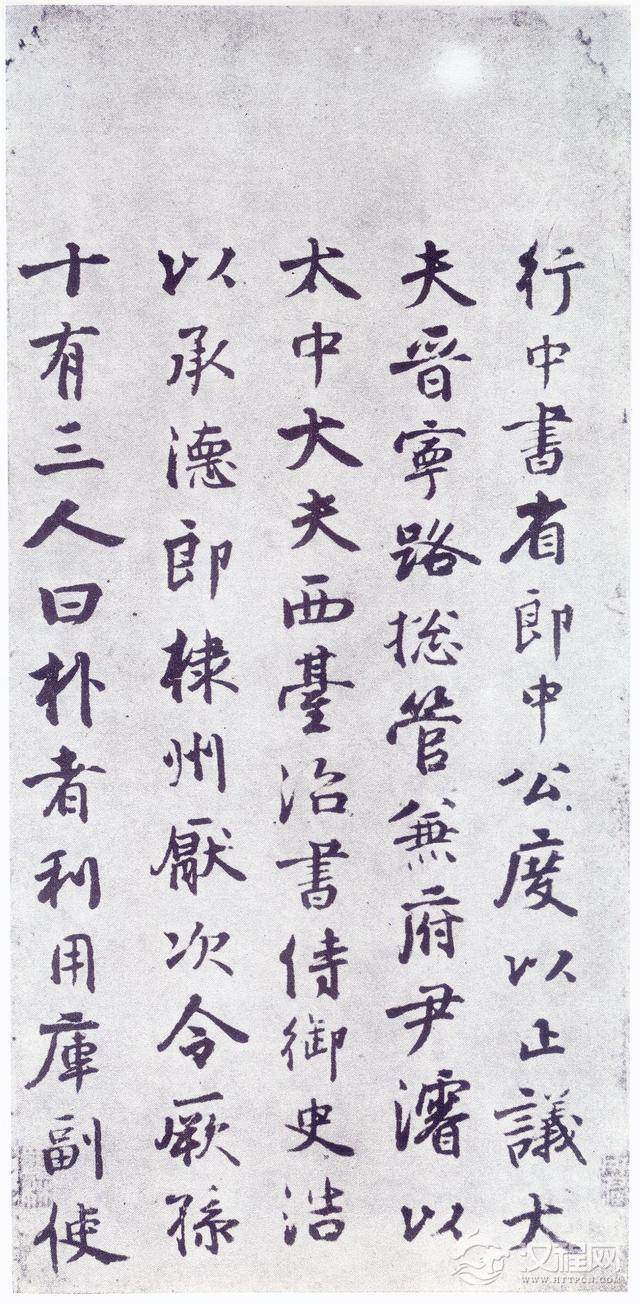 行中書省郎中公度以正議大
夫晉寧路捴管兼府尹濬以
太中大夫西臺治書侍御史浩
以承德郎棣州厭次令厥孫
十有三人曰朴者利用庫副使
汉程网
WWW.HTTPCN.COM